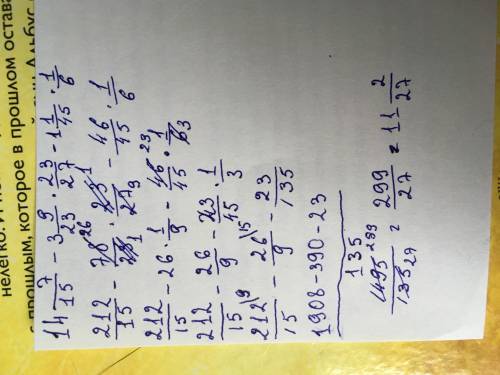 нелегко. И
прошлым, которое в прошлом остава
Альбус
14 7/15 - 3 9/23 · 23/27 - 1 1/45 · 1/6
212/15 - 78 26/23 1 · 23 1/27 3 - 46/45 · 1/6
212/15 - 26 · 1/9 - 46 23/45 · 1/6 3
212/15 - 26/9 - 23/45 · 1/3
212\9/15 - 26\15/9 - 23/135
1908-390-23
135
1495 299/135 27 = 299/27 = 11 2/27